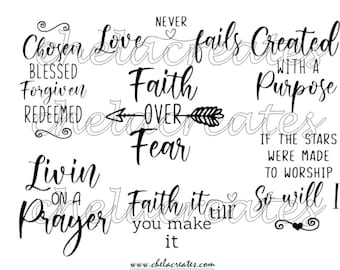 Chosen
BLESSED
Forgiven
REDEEMED
NEVER
Love fails
Created
WITH A
Purpose
Faith
OVER
Fear
IF THE STARS
WERE MADE
TO WORSHIP
So will I
Livin
ON A
Prayer
Faith it till
you make
it
chelacreates
chelacreates
www.chelacreates.com